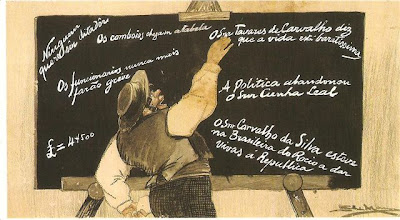 Ninguem
quer ser ditador
Os comboios chegam á tabela
O Snr Tavares de Carvalho diz
que a vida está baratissima
Os funcionarios nunca mais
farão greve
A Politica abandonou
o Snr Cunha Leal
£ = 4$500
O Snr Carvalho da Silva esteve
na Brasileira do Rocio a dar
vivas á Republica